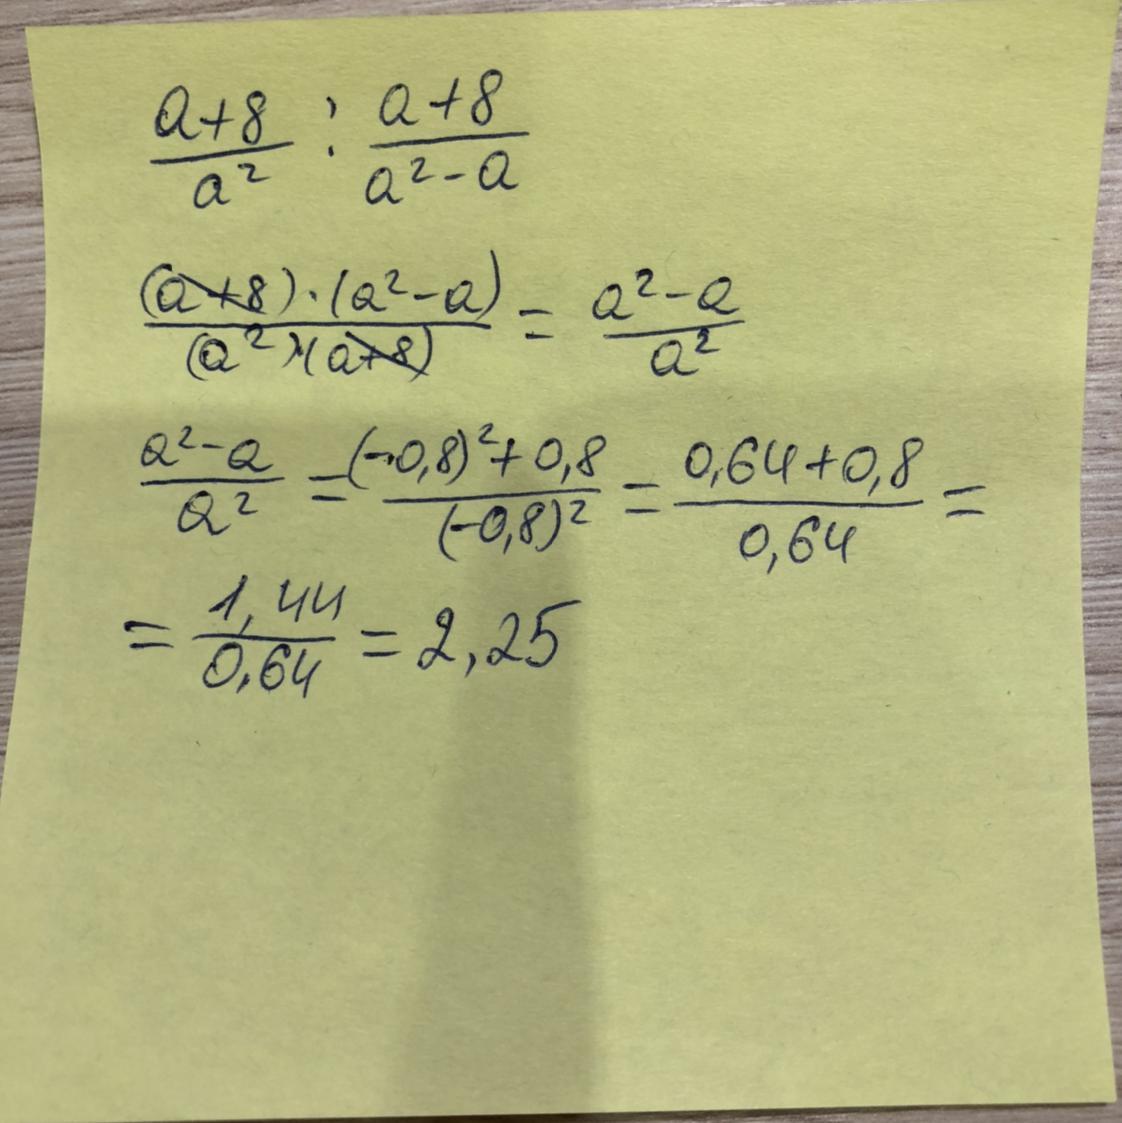 (a+8)/a² : (a+8)/(a²-a)
((a+8)·(a²-a))/((a²)·(a+8)) = (a²-a)/a²
(a²-a)/a² = ((-0,8)²+0,8)/(-0,8)² = (0,64+0,8)/0,64 =
= 1,44/0,64 = 2,25